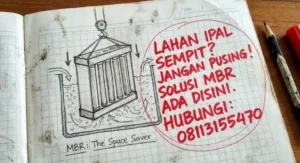 LAHAN IPAL
SEMPIT?
JANGAN PUSING!
SOLUSI MBR
ADA DISINI.
HUBUNGI:
08113155470
MBR: The Space Saver